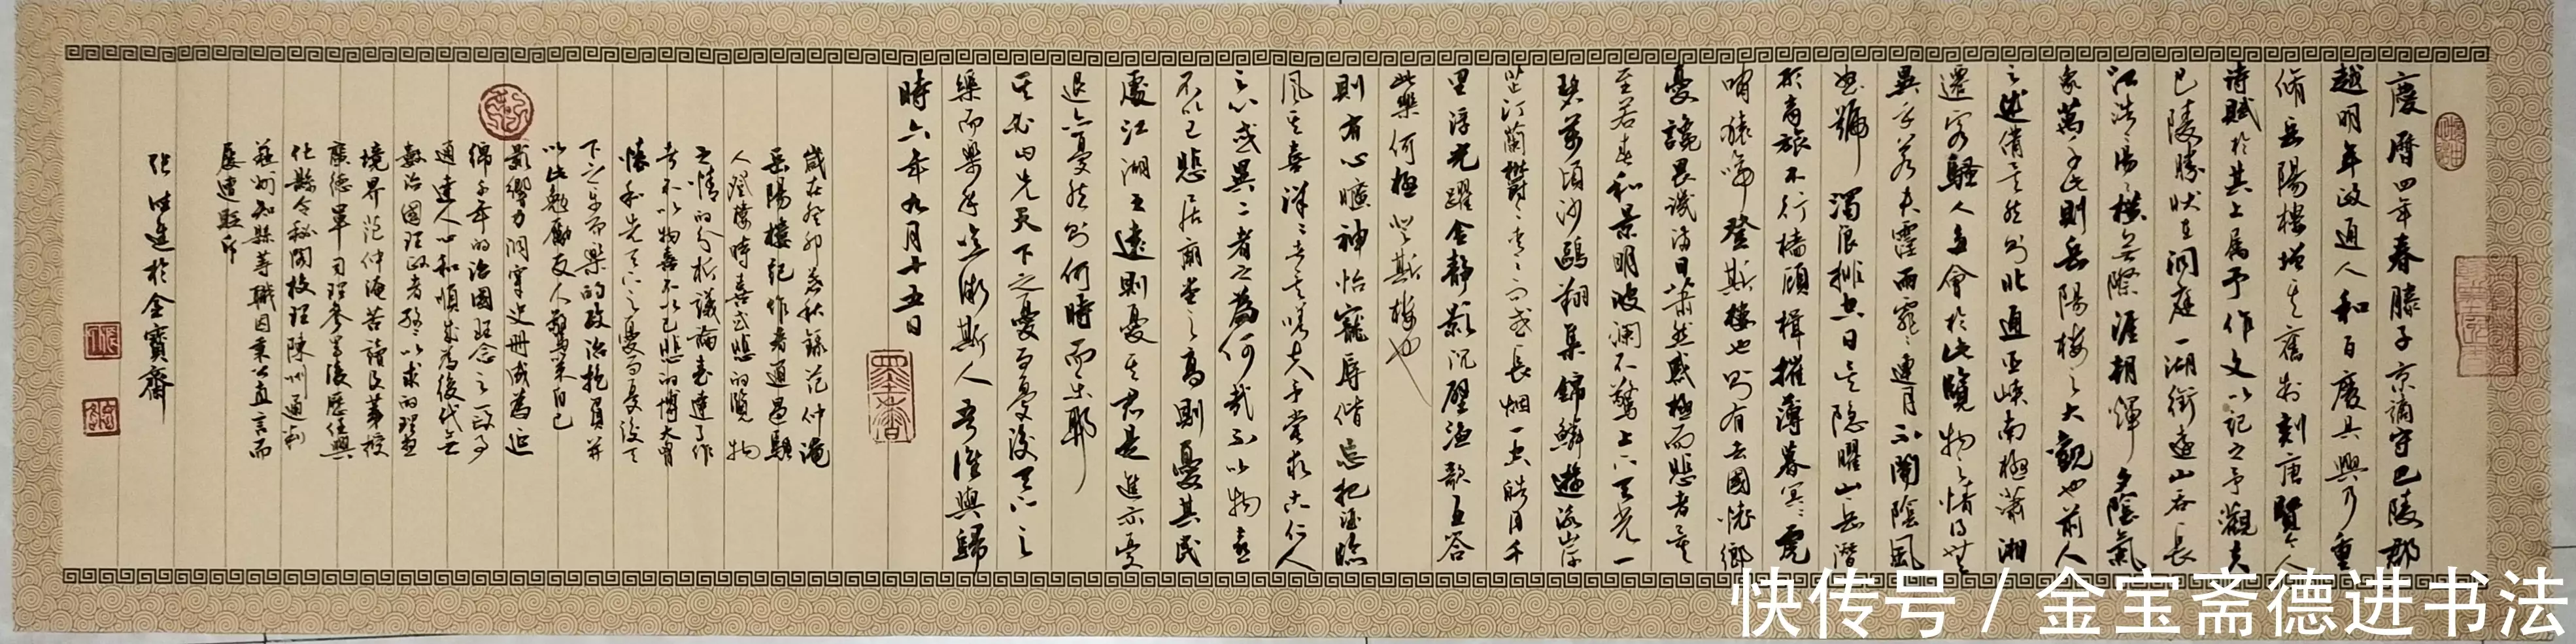 慶曆四年春滕子京謫守巴陵郡
越明年政通人和百廢具興乃重
脩岳陽樓增其舊制刻唐賢今人
詩賦於其上属予作文以記之予觀夫
巴陵勝狀在洞庭一湖銜遠山吞長
江浩〻湯〻橫無際涯朝暉夕陰氣
象萬千此則岳陽樓之大觀也前人
之述備矣然則北通巫峽南極瀟湘
遷客騷人多會於此覽物之情得無
異乎若夫霪雨霏〻連月不開陰風
怒號濁浪排空日星隐曜山岳潛
形商旅不行檣傾楫摧薄暮冥〻虎
嘯猿啼登斯樓也則有去國懷鄉
憂讒畏譏滿目蕭然感極而悲者矣
至若春和景明波瀾不驚上下天光一
碧萬頃沙鷗翔集錦鱗遊泳岸
芷汀蘭鬱〻青〻而或長烟一空皓月千
里浮光躍金靜影沉璧漁歌互答
此樂何極登斯樓也
則有心曠神怡寵辱偕忘把酒臨
風其喜洋〻者矣嗟夫予嘗求古仁人
之心或異二者之為何哉不以物喜
不以己悲居廟堂之高則憂其民
處江湖之遠則憂其君是進亦憂
退亦憂然則何時而樂耶
其必曰先天下之憂而憂後天下之
樂而樂乎噫微斯人吾誰與歸
時六年九月十五日
歲在癸卯春秋錄范仲淹
岳陽樓記作者通過騷
人登樓時喜或悲的覽物
之情的分析議論表達了作
者不以物喜不以己悲的博大胸
懷和先天下之憂而憂後天
下之樂而樂的政治抱負并
以此勉勵友人鞭策自己
影響力洞穿史冊成為近
綿千年的治國理念之一政
通達人心和順成為後代無
數治國理政者孜〻以求的理想
境界范仲淹苦讀及第授
廣德軍司理參軍後歷任興
化縣令秘閣校理陳州通判
蘇州知縣等職因秉公直言而
屢遭貶斥
張德進於金寶齋
快传号 / 金宝斋德进书法